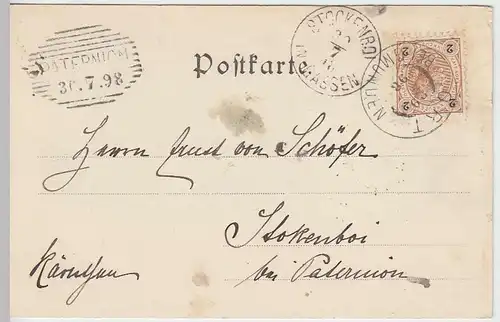 STOCKENBOI
IM GRASSEN
PATERNION
30.7.98
Postkarte.
2 2
2 2
Herrn Ernst von Schöfer
Stokenboi
bei Paternion
Kärnthen